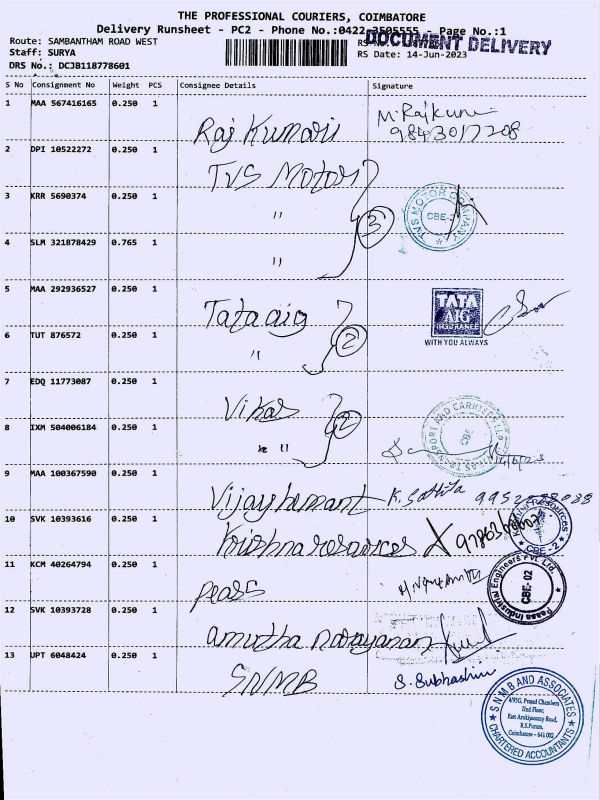 THE PROFESSIONAL COURIERS, COIMBATORE
Delivery Runsheet - PC2 - Phone No.:0422-3505555 Page No.:1
DOCUMENT DELIVERY
Route: SAMBANTHAM ROAD WEST
Staff: SURYA
RS Date: 14-Jun-2023
DRS No.: DCJB118778601
S No Consignment No Weight PCS Consignee Details Signature
1 MAA 567416165 0.250 1
Raj Kumari M. Rajkumari
9843017208
2 DPI 10522272 0.250 1
TVS Motor
3 KRR 5690374 0.250 1
"
3
TVS MOTOR COMPANY
CBE-2
4 SLM 321878429 0.765 1
"
5 MAA 292936527 0.250 1
Tata aig
TATA
AIG
INSURANCE
WITH YOU ALWAYS
6 TUT 876572 0.250 1
"
2
7 EDQ 11773087 0.250 1
Vikas
8 IXM 504006184 0.250 1
"
2
VIKAS TRANSPORT AND CARRIERS LLP
CBE
9 MAA 100367590 0.250 1
Vijay hemant
10 SVK 10393616 0.250 1
Krishna resources
Resources
CBE-2
11 KCM 40264794 0.250 1
peass
Peass Industrial Engineers Pvt. Ltd.
CBE-02
12 SVK 10393728 0.250 1
amirtha narayanan
13 UPT 6048424 0.250 1
SNMB S. Subhashini
S N M B AND ASSOCIATES
2nd Floor,
East Arokiyasamy Road,
R.S.Puram,
Coimbatore - 641 002
CHARTERED ACCOUNTANTS